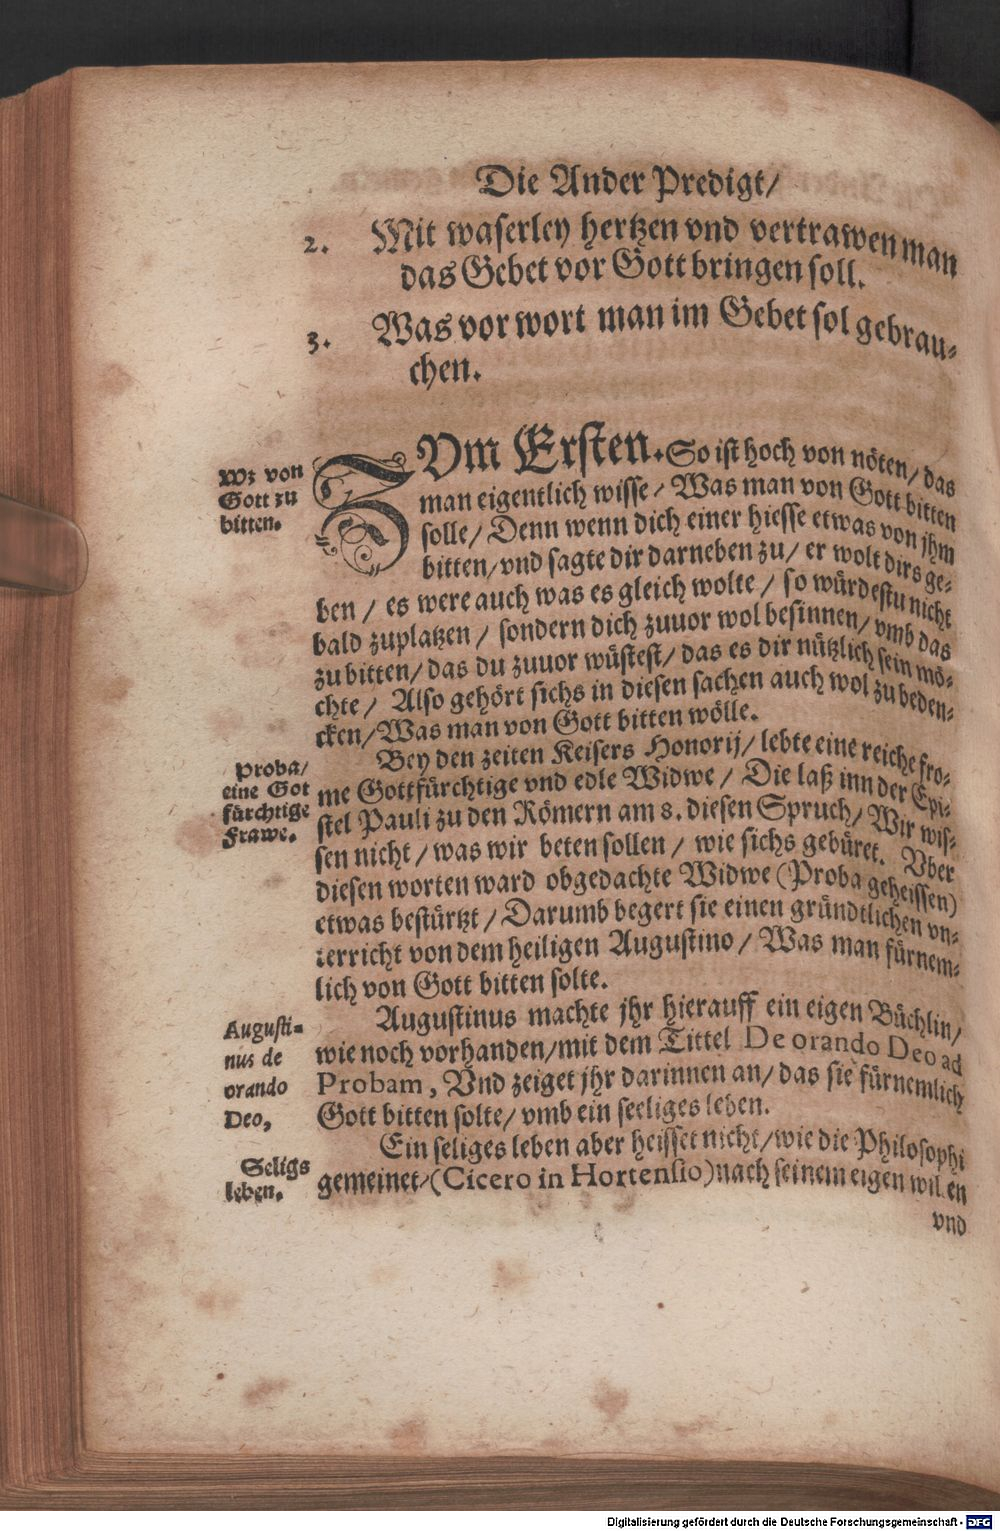 Die Ander Predigt/
2. Mit waserley hertzen vnd vertrawen man
das Gebet vor Gott bringen soll.
3. Was vor wort man im Gebet sol gebrau-
chen.
Wz von
Gott zu
bitten.
ZVm Ersten. So ist hoch von nöten/ das
man eigentlich wisse/ Was man von Gott bitten
solle/ Denn wenn dich einer hiesse etwas von jhm
bitten/ vnd sagte dir darneben zu/ er wolt dirs ge-
ben/ es were auch was es gleich wolte/ so würdestu nicht
bald zuplatzen/ sondern dich zuuor wol besinnen/ vmb das
zu bitten/ das du zuuor wüstest/ das es dir nützlich sein mö-
chte/ Also gehört sichs in diesen sachen auch wol zu beden-
cken/ Was man von Gott bitten wölle.
Proba/
eine Got
fürchtige
Frawe.
Bey den zeiten Keisers Honorij/ lebte eine reiche fro-
me Gottfürchtige vnd edle Widwe/ Die laß inn der Epi-
stel Pauli zu den Römern am 8. diesen Spruch/ Wir wis-
sen nicht/ was wir beten sollen/ wie sichs gebüret. Vber
diesen worten ward obgedachte Widwe (Proba geheissen)
etwas bestürtzt/ Darumb begert sie einen gründtlichen vn-
terricht von dem heiligen Augustino/ Was man fürnem-
lich von Gott bitten solte.
Augusti-
nus de
orando
Deo,
Augustinus machte jhr hierauff ein eigen Büchlin/
wie noch vorhanden/ mit dem Tittel De orando Deo ad
Probam, Vnd zeiget jhr darinnen an/ das sie fürnemlich
Gott bitten solte/ vmb ein seeliges leben.
Seligs
leben.
Ein seliges leben aber heisset nicht/ wie die Philosophi
gemeinet/ (Cicero in Hortensio) nach seinem eigen willen
vnd
Digitalisierung gefördert durch die Deutsche Forschungsgemeinschaft - DFG